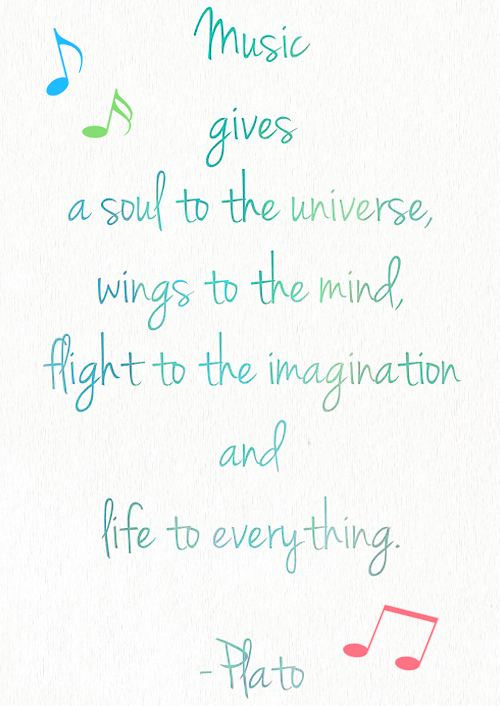 Music
gives
a soul to the universe,
wings to the mind,
flight to the imagination
and
life to everything.
-Plato